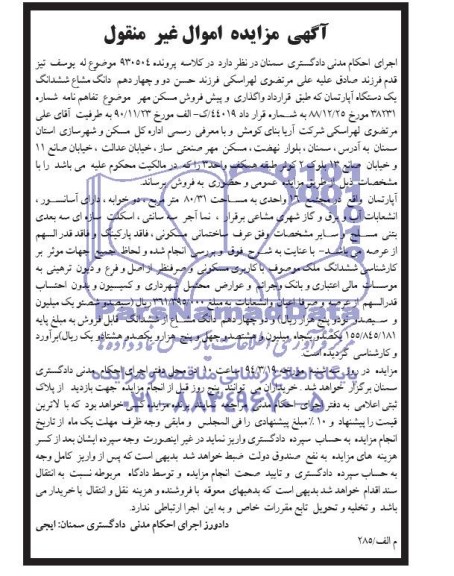 آگهی مزایده اموال غیر منقول
اجرای احکام مدنی دادگستری سمنان در نظر دارد در کلاسه پرونده ۹۳۰۵۰۴ موضوع له یوسف تیز
قدم فرزند صادق علیه علی مرتضوی لهراسکی فرزند حسن دو و چهار دهم دانگ مشاع ششدانگ
یک دستگاه آپارتمان که طبق قرارداد واگذاری و پیش فروش مسکن مهر موضوع تفاهم نامه شماره
۳۸۲۳۱ مورخ ۸۸/۱۲/۲۵ به شماره قرار داد ۴۴۰۱۹/ک-الف مورخ ۹۰/۱۱/۲۳ به ظرفیت آقای علی
مرتضوی لهراسکی شرکت آریا بنای کومش و با معرفی رسمی اداره کل مسکن و شهرسازی استان
سمنان به آدرس ، سمنان ، بلوار نهضت ، مسکن مهر صنعتی ساز ، خیابان عدالت ، خیابان صانع ۱۱
و خیابان صانع ۱۳ بلوک ۲ کولار طبقه همکف واحد ۳ را که در مالکیت محکوم علیه می باشد را با
مشخصات ذیل از طریق مزایده عمومی و حضوری به فروش برساند.
آپارتمان واقع در مجتمع ۱۶ واحدی به مساحت ۸۰/۳۱ متر مربع ، دو خوابه ، دارای آسانسور ،
انشعابات آب و برق و گاز شهری مشاعی برقرار ، نما آجر سه سانتی ، اسکلت سازه ای سه بعدی
بتنی مسلح و سایر مشخصات وفق عرف ساختمانی مسکونی ، فاقد پارکینگ و فاقد قدر السهم
از عرصه می باشد- با عنایت به شرح فوق و بررسی انجام شده و لحاظ جمیع جهات موثر بر
کارشناسی ششدانگ ملک موصوف با کاربری مسکونی و صرفنظر از اصل و فرع و دیون ترهینی به
موسسات مالی اعتباری و بانک و جرائم و عوارض محتمل شهرداری و کمیسیون و بدون احتساب
قدرالسهم از عرصه و صرفا اعیان و انشعابات به مبلغ ۳۶۱/۳۹۵/۰۰۰ ریال (سیصد و شصت و یک میلیون
و سیصد و نود و پنج هزار ریال) و دو چهار دهم دانگ مشاع از ششدانگ قابل فروش به مبلغ پایه
۱۵۵/۸۴۵/۱۸۱ یکصد و پنجاه میلیون و هشتصد و چهل و پنج هزار و یکصد و هشتاد و یک ریال) برآورد
و کارشناسی گردیده است.
مزایده در روز سه شنبه مورخه ۹۴/۳/۱۹ ساعت ۱۰ در محل دفتر اجرای احکام مدنی دادگستری
سمنان برگزار خواهد شد . خریداران می توانند پنج روز قبل از انجام مزایده جهت بازدید از پلاک
ثبتی اعلامی به دفتر اجرای احکام مدنی مراجعه نمایند. برنده مزایده کسی خواهد بود که با لاترین
قیمت را پیشنهاد و ۱۰٪ مبلغ پیشنهادی را فی المجلس و مابقی وجه ظرف مهلت یک ماه از تاریخ
انجام مزایده به حساب سپرده دادگستری واریز نماید در غیر اینصورت وجه سپرده ایشان بعد از کسر
هزینه های مزایده به نفع صندوق دولت ضبط خواهد شد بدیهی است که پس از واریز کامل وجه
به حساب سپرده دادگستری و تایید صحت انجام مزایده و توسط دادگاه مربوطه نسبت به انتقال
سند اقدام خواهد شد بدیهی است که بدهیهای معوقه با فروشنده و هزینه نقل و انتقال با خریدار می
باشد و تخلیه و تحویل تابع مقررات خاص و به این اجرا ارتباطی ندارد.
دادورز اجرای احکام مدنی دادگستری سمنان: ایجی
م الف/۲۸۵
ParsNamadData
۰۲۱-۸۸۳۴۹۶۷۰-۵